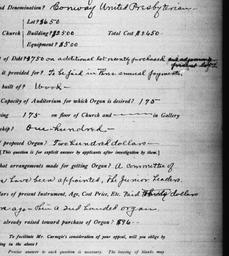 d Denomination? Conway United Presbyterian.
Lot? $450
Church Building? $2500 Total Cost $3450
Equipment? $500
of Debt? $750 on additional lot recently purchased
it provided for? To be paid in three annual payments.
built of? Wood -
Capacity of Auditorium for which Organ is desired? 175 -
ing 175 on floor of Church and —— in Gallery
ship? One-hundred -
proposed Organ? Two hundred dollars -
[This question is for explicit answer by applicants after investigation by them]
hat arrangements made for getting Organ? A committee of
have been appointed, The Junior Leaders.
lars of present Instrument, Age, Cost Price, Etc. Paid dollars
ago - then a 2nd handed organ.
already raised toward purchase of Organ? $94 -
To facilitate Mr. Carnegie's consideration of your appeal, will you oblige by
ing in the above!
Precise answer to each question is necessary. The leaving of blanks may